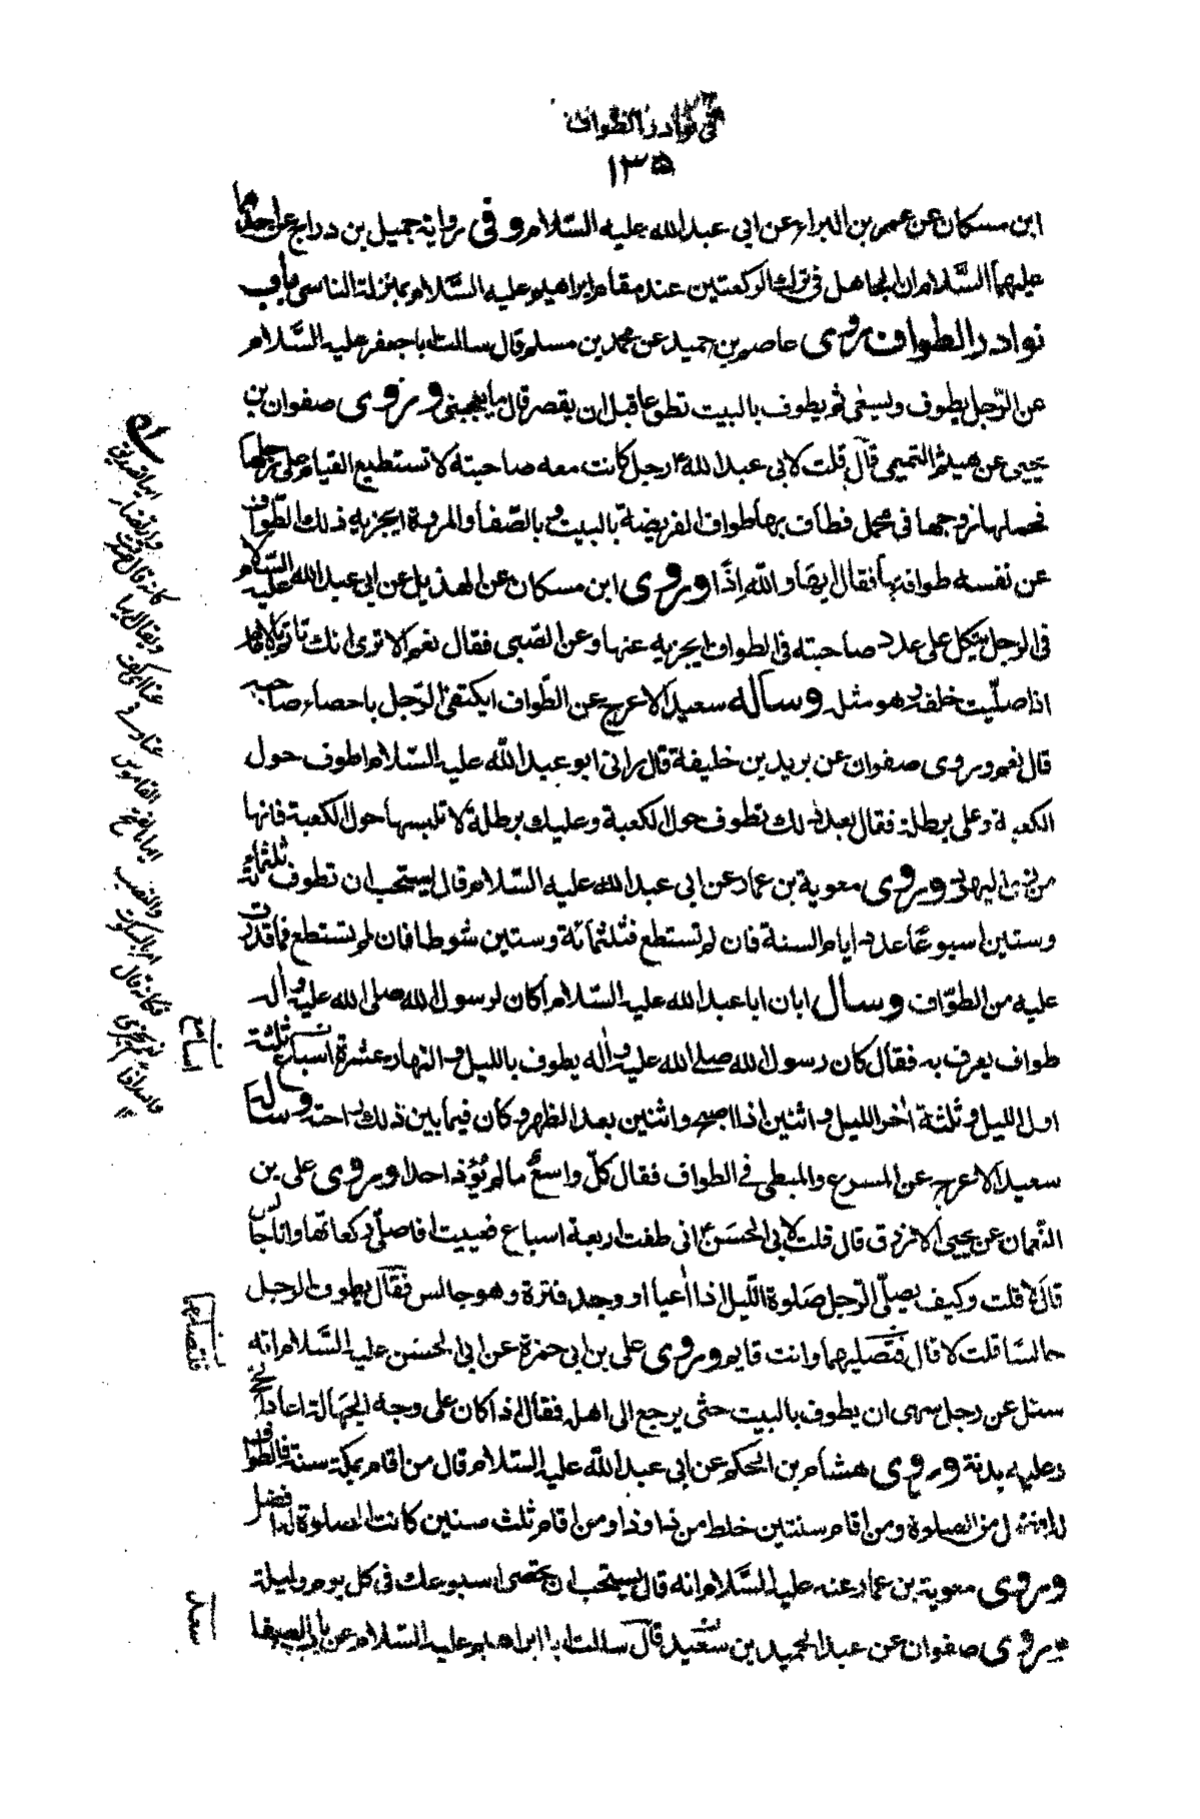 في نوادر الطواف
١٣٥
ابن مسكان عن عمر بن البراء عن ابي عبد الله عليه السّلام وفى رواية جميل بن دراج عن احدهما
عليهما السَّلام ان الجاهل فى ترك الركعتين عند مقام ابراهيم عليه السَّلام بمنزلة الناسى باب
نوادر الطواف وروى عاصم بن حميد عن محمد بن مسلم قال سالت ابا جعفر عليه السَّلام
عن الرّجل يطوف ويسعى ثم يطوف بالبيت تطوعا قبل ان يقصر قال ما يعجبنى وروى صفوان بن
يحيى عن هيثم التميمى قال قلت لابى عبد الله ع رجل كانت معه صاحبته لا تستطيع القيام على رجلها
فحملها زوجها فى محمل فطاف بها طواف الفريضة بالبيت و بالصّفا والمروة ايجزيه ذلك الطّواف
عن نفسه طوافه بها فقال ايها والله اِذًا وروى ابن مسكان عن الهذيل عن ابى عبد الله عليه السّلام
فى الرجل يتكل على عدد صاحبته فى الطواف ايجزيه عنها وعن الصّبى فقال نعم الا ترى انك تاتم بالامام
اذا صلّيت خلفه وهو مثله وساله سعيد الاعرج عن الطّواف ايكتفى الرّجل باحصاء صاحبه
قال نعم وروى صفوان عن يزيد بن خليفة قال رانى ابو عبد اللّه عليه السّلام اطوف حول
الكعبة وعلى برطلة فقال بعد ذلك تطوف حول الكعبة وعليك برطلة لا تلبسها حول الكعبة فانها
من زى اليهود وروى معوية بن عمار عن ابى عبد الله عليه السّلام قال يستحب ان تطوف ثلثمائة
وستين اسبوعًا عدد ايام السنة فان لم تستطع فثلثمائة وستين شوطا فان لم تستطع فما قدرت
عليه من الطوّاف وسال ابان ابا عبد الله عليه السّلام أكان لرسول الله صلى الله عليه وآله
طواف يعرف به فقال كان رسول الله صلى الله عليه وآله يطوف بالليل والنهار عشرة اسباع ثلثة
اول الليل وثلثة آخر الليل واثنين اذا اصبح واثنين بعد الظهر وكان فيما بين ذلك راحته وساله
سعيد الاعرج عن المسرع والمبطى فى الطواف فقال كلّ واسعٌ ما لم يُؤذ احدا وروى على بن
النّعمان عن يحيى الازرق قال قلت لابى الحسَن ع انى طفت اربعة اسباع فعييت افاصلّى ركعاتها وانا جالس
قال لا قلت وكيف يصلّى الرّجل صلوة اللّيل اذا أعيا او وجد فترة وهو جالس فقال يطوف الرجل
جالسًا قلت لا قال فتصليهما وانت قايم وروى على بن ابى حمزة عن ابى الحسَن عليه السَّلام انه
سئل عن رجل سهى ان يطوف بالبيت حتى يرجع الى اهله فقال اذا كان على وجه الجهالة اعاد الحج
وعليه بدنة وروى هشام بن الحكم عن ابى عبد اللّه عليه السّلام قال من اقام بمكة سنة فالطواف
له افضل من الصلوة ومن اقام سنتين خلط من ذا وذا ومن اقام ثلث سنين كانت الصلوة له افضل
وروى معوية بن عمار عنه عليه السَّلام انه قال يستحب ان تحصى اسبوعك فى كل يوم وليلة
وروى صفوان عن عبد الحميد بن سعيد قال سالت ابا ابراهيم عليه السّلام عن باب الصفا
اسابيع
فتصليهما
سعد